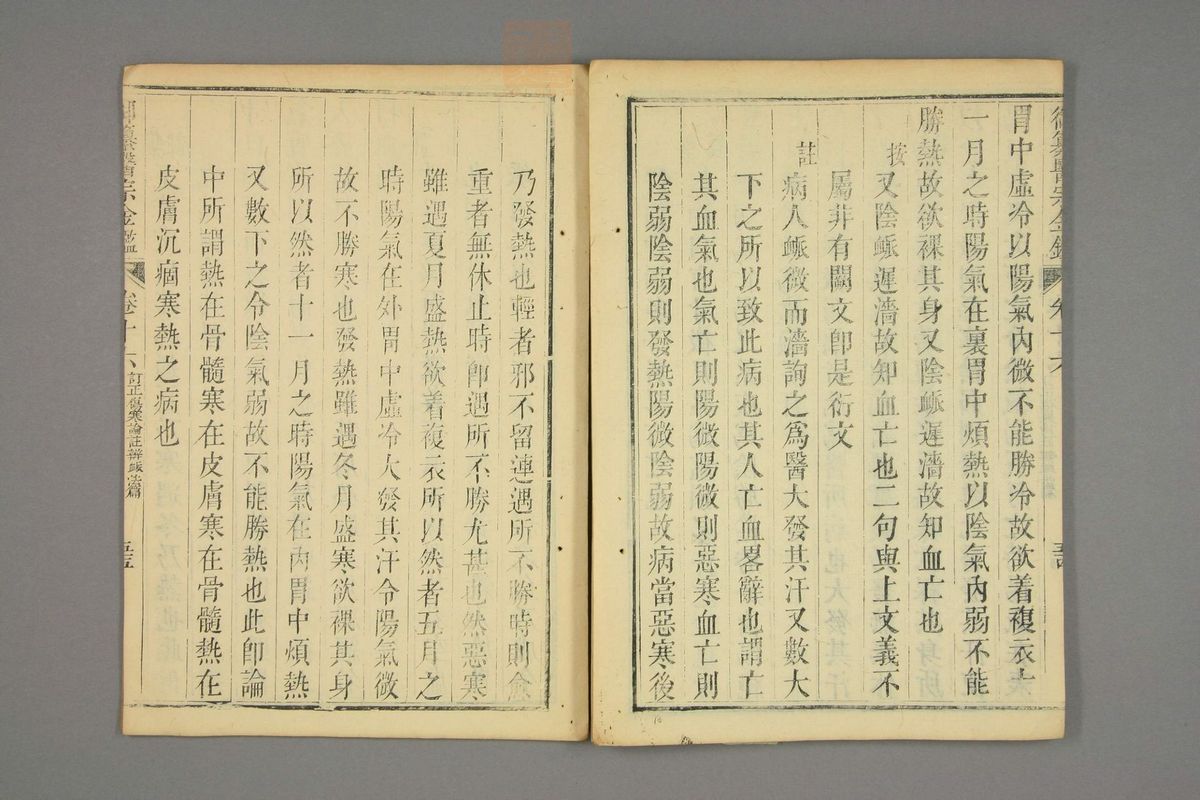 胃中虛冷以陽氣內微不能勝冷故欲着複衣十
一月之時陽氣在裏胃中煩熱以陰氣內弱不能
勝熱故欲裸其身又陰衇遲濇故知血亡也
按
又陰衇遲濇故知血亡也二句與上文義不
屬非有闕文卽是衍文
註
病人衇微而濇詢之為醫大發其汗又數大
下之所以致此病也其人亡血畧辭也謂亡
其血氣也氣亡則陽微陽微則惡寒血亡則
陰弱陰弱則發熱陽微陰弱故病當惡寒後
乃發熱也輕者邪不留連遇所不勝時則愈
重者無休止時卽遇所不勝尤甚也然惡寒
雖遇夏月盛熱欲着複衣所以然者五月之
時陽氣在外胃中虛冷大發其汗令陽氣微
故不勝寒也發熱雖遇冬月盛寒欲裸其身
所以然者十一月之時陽氣在內胃中煩熱
又數下之令陰氣弱故不能勝熱也此卽論
中所謂熱在骨髓寒在皮膚寒在骨髓熱在
皮膚沉痼寒熱之病也
御纂醫宗金鑑 卷十六 訂正傷寒論註辨衇法篇